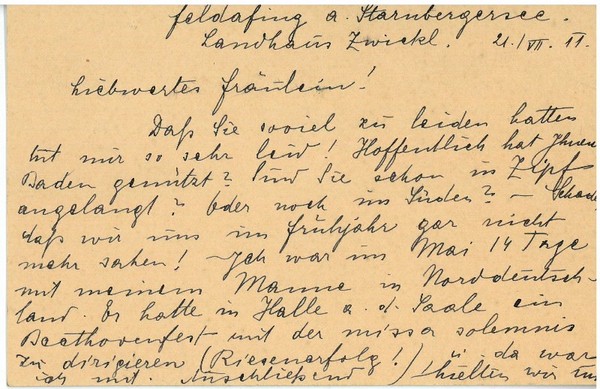 Feldafing a. Starnbergersee.
Landhaus Zwickl. 21./VII. 11.
Liebwertes Fräulein!
Daß Sie soviel zu leiden hatten
tut mir so sehr leid! Hoffentlich hat Ihnen
Baden genützt? Sind Sie schon in Zipf
angelangt? Oder noch im Süden? – Schade
daß wir uns im Frühjahr gar nicht
mehr sahen! – Ich war im Mai 14 Tage
mit meinem Manne in Norddeutsch-
land. Er hatte in Halle a. d. Saale ein
Beethovenfest mit der missa solemnis
zu dirigieren (Riesenerfolg!) u. da war
ich mit. Anschließend hielten wir uns